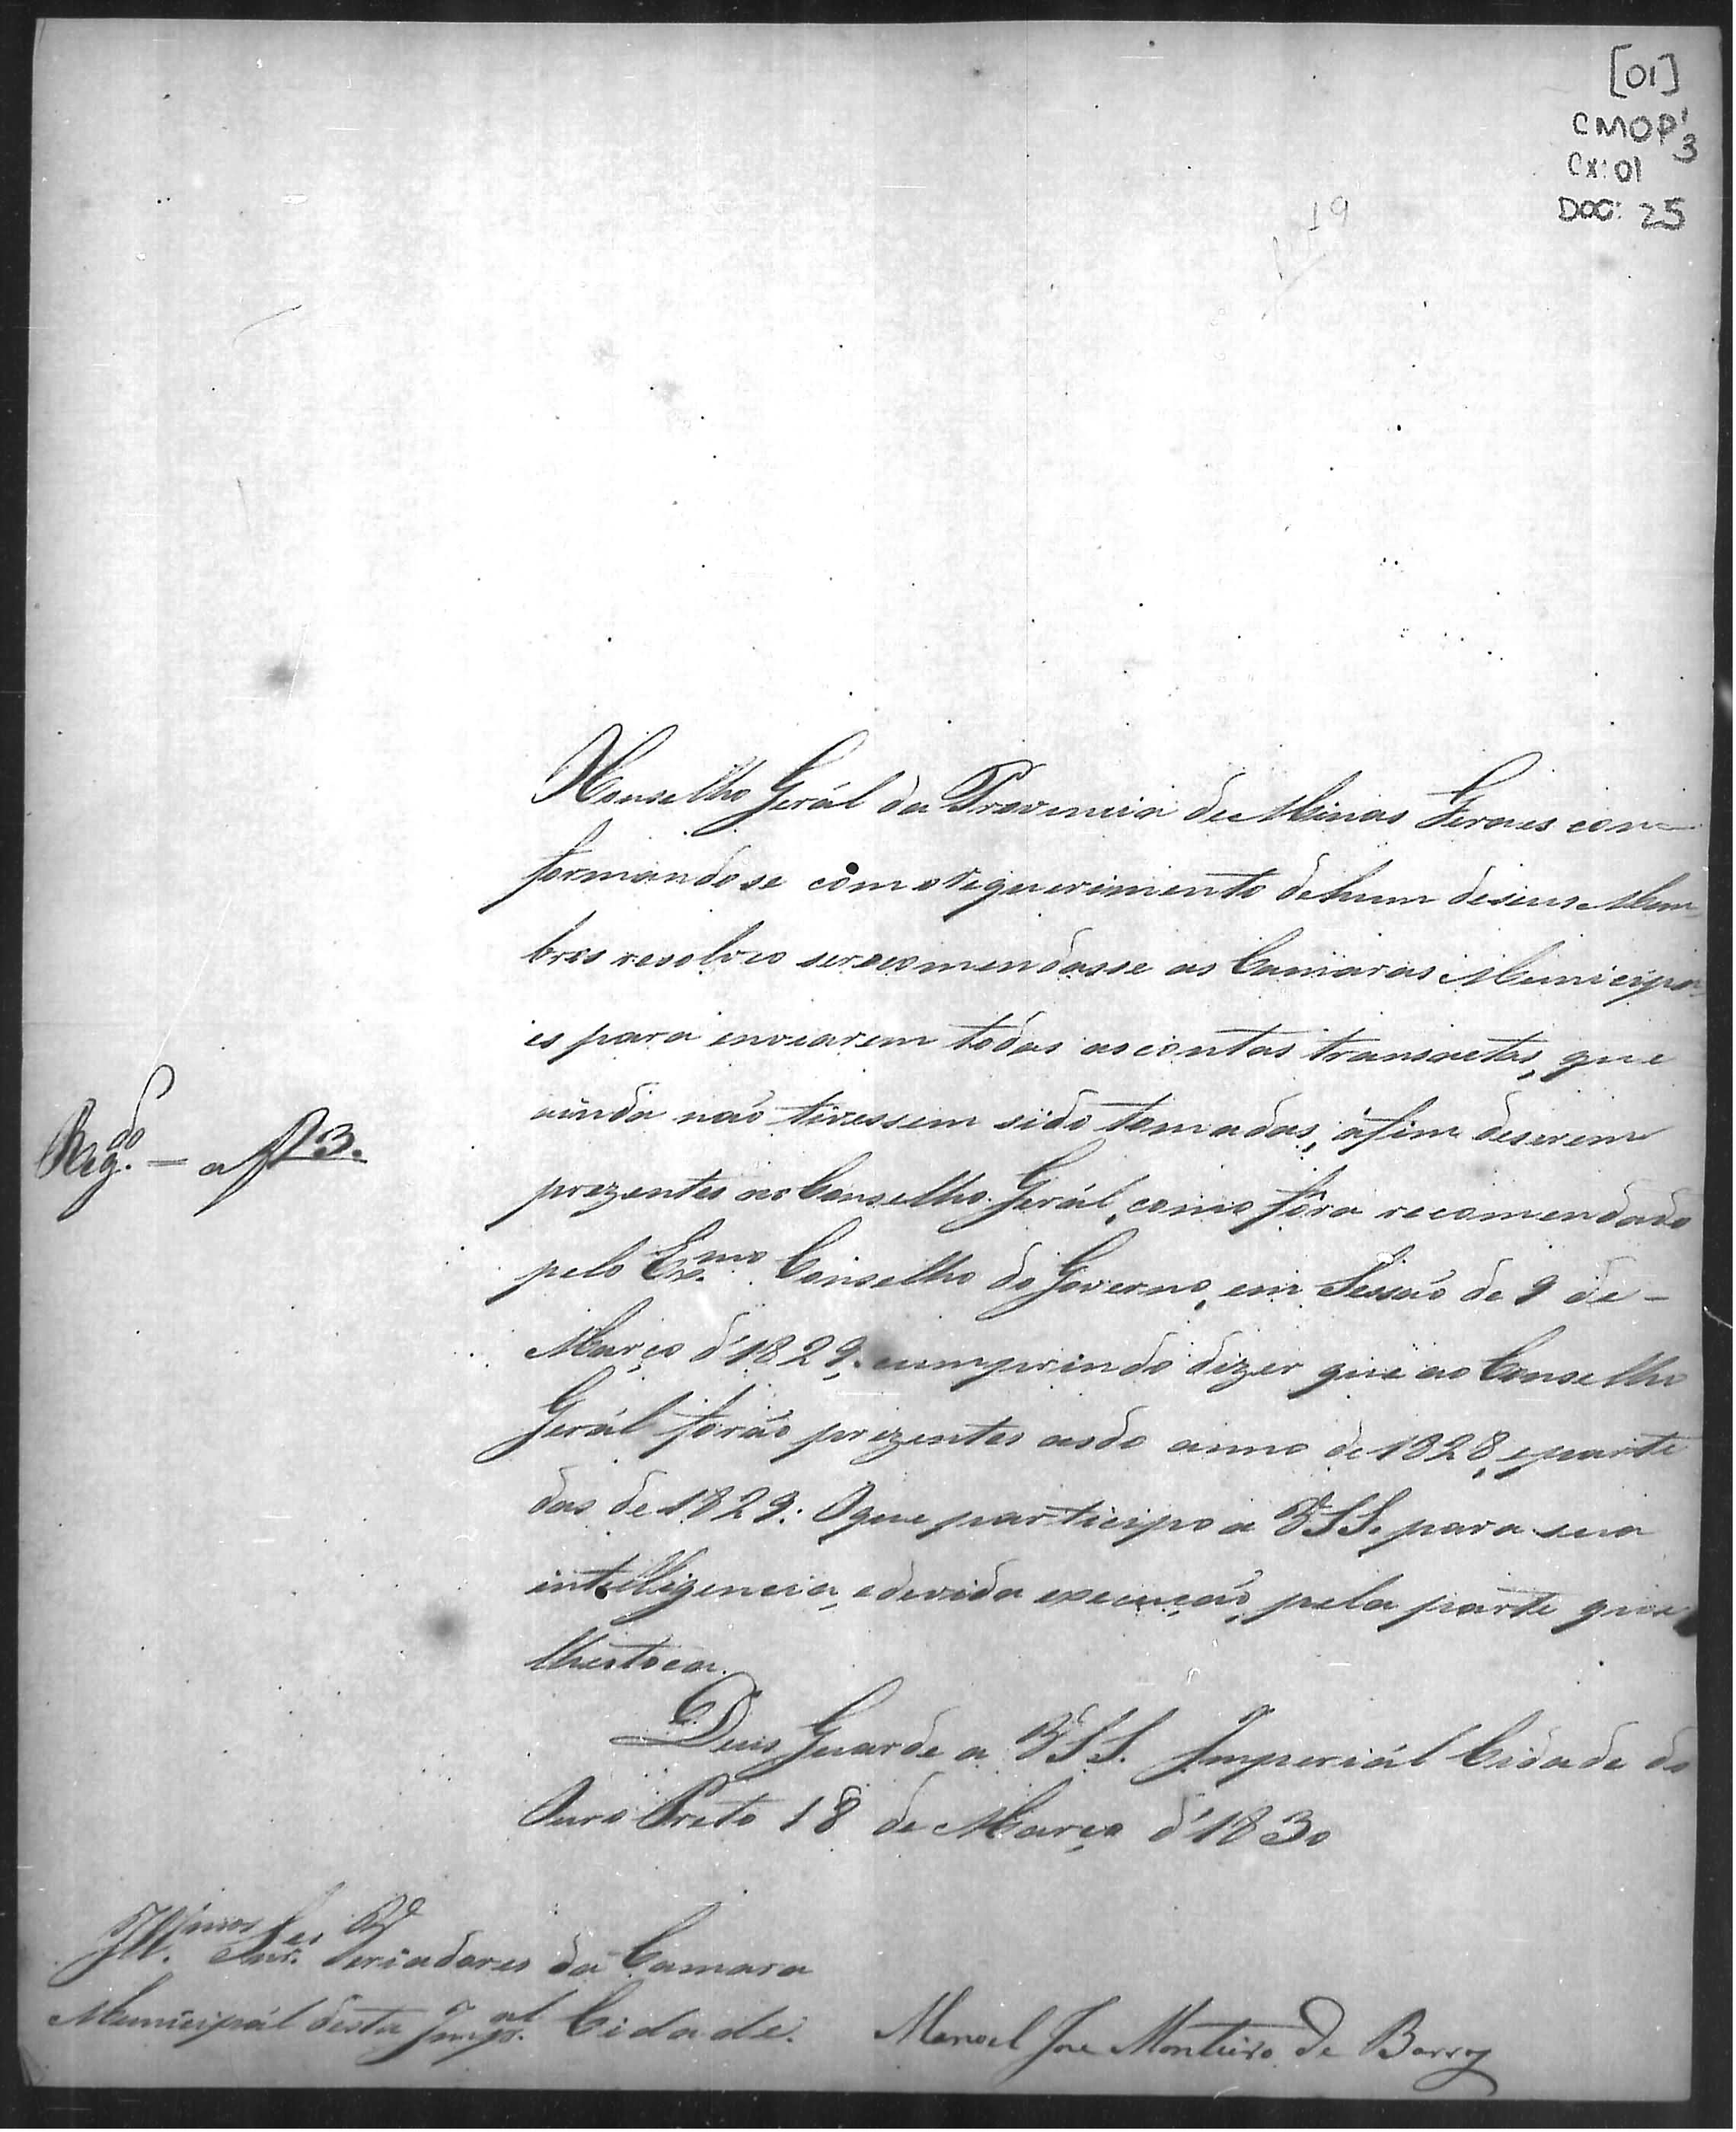 [01]
CMOP 3
Cx: 01
DOC: 25
19
O Conselho Gerál da Provincia de Minas Geraes con=
formando se com o requerimento de hum de seus Mem
bros resolveo se recomendasse as Camaras Municipa
es para enviarem todas as contas transactas, que
ainda não tivessem sido tomadas, áfim de serem
prezentes ao Conselho Gerál, como fôra recomendado
pelo Ex.mo Conselho do Governo, em Sessão de 9 de -
Março d'1829, cumprindo dizer que ao Conselho
Gerál forão prezentes as do anno de 1828, e parte
das de 1829. O que participo a VSS. para sua
intelligencia, e devida execução, pela parte que
lhes toca.
Reg.do - a f 3.
Deus Guarde a VSS. Imperiál Cidade do
Ouro Preto 18 de Março d'1830
Ill.mos Snr.es Veriadores da Camara
Municipál desta Imp.al Cidade.
Manoel Jose Monteiro de Barros